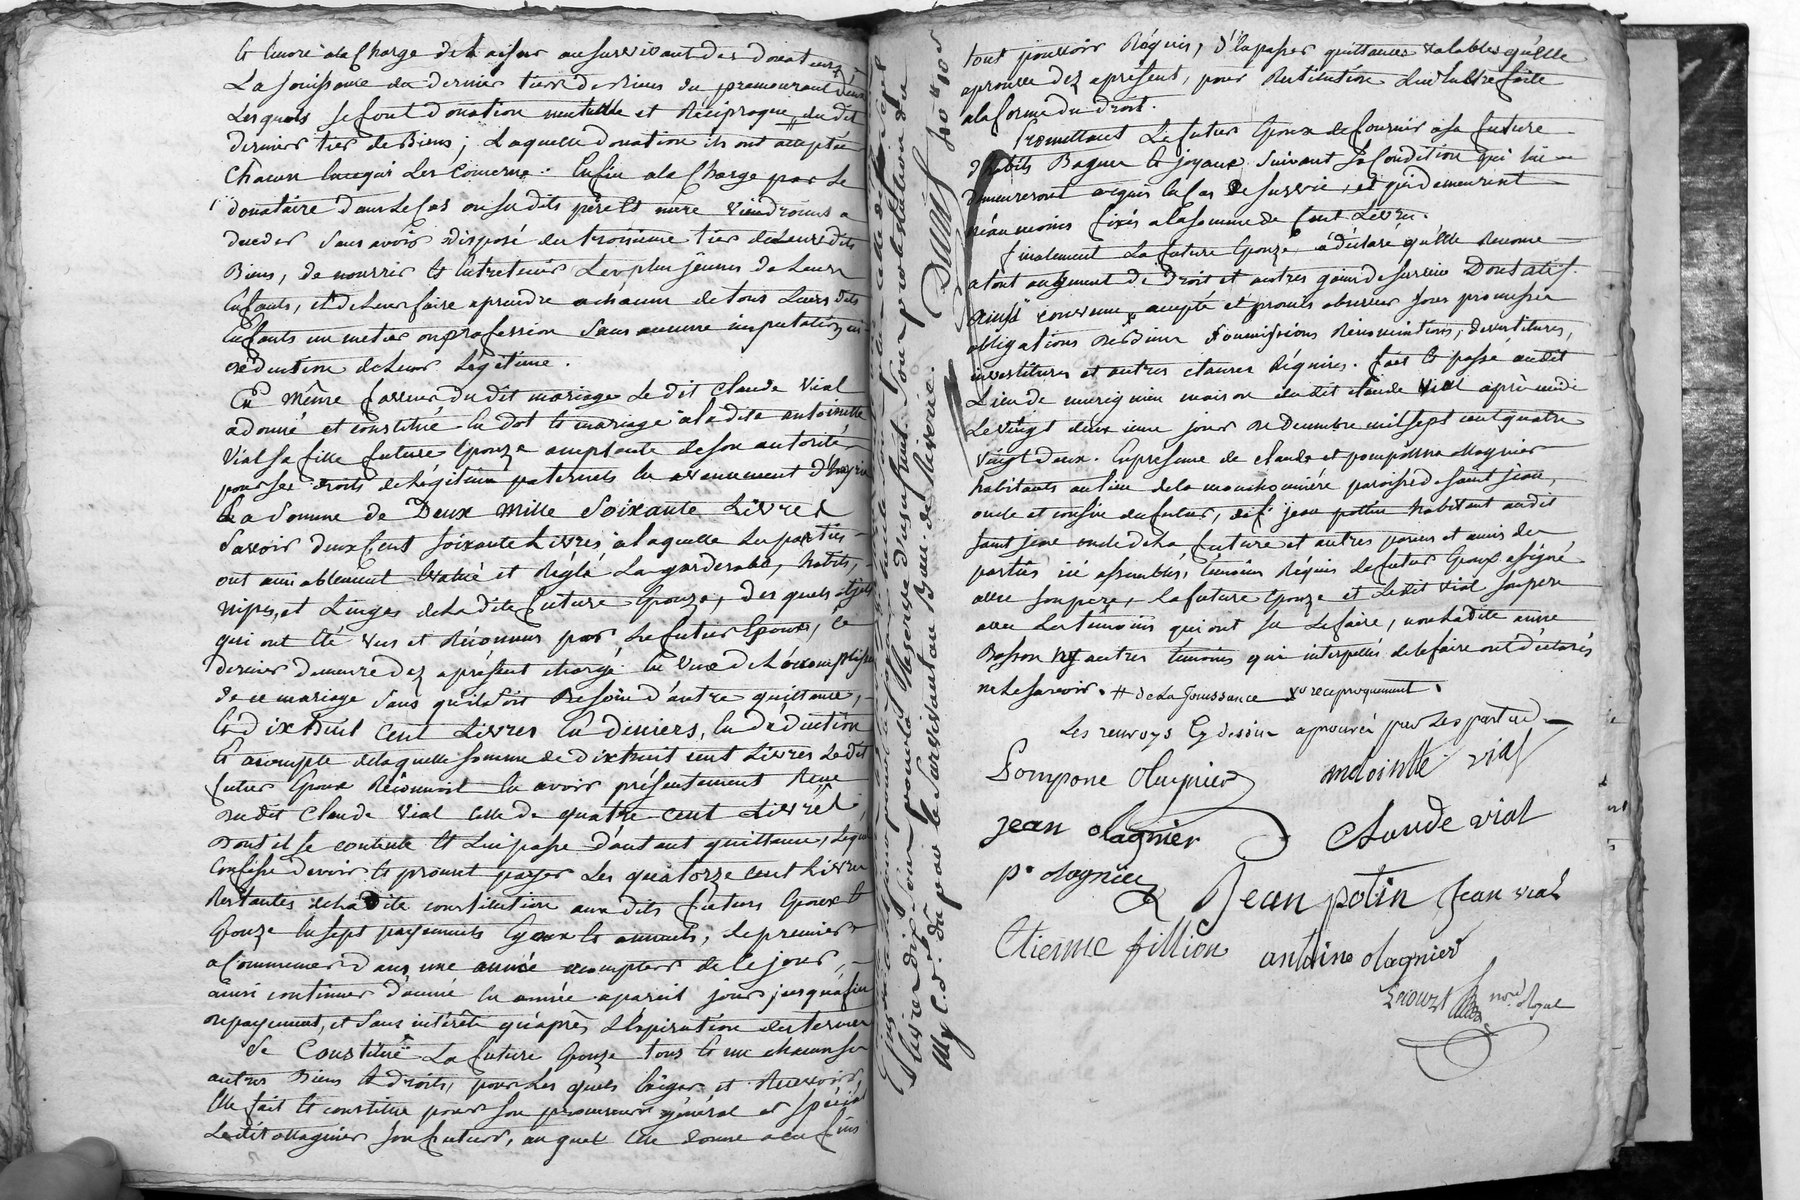 et encore a la Charge de Laisser au survivant des donateurs #
La jouissance du dernier tiers de Biens du premourant d'eux
Lesquels se font donation mutuelle et Réciproque x du dit
dernier tier de Biens ; Laquelle donation ils ont acceptée
Chacun En cequi Les Concerne. Enfin a la Charge par Le
donataire dans Le Cas ou su dits père Et mere Viendroint a
deceder Sans avoir disposé du troisieme tier de Leurs dits
Biens, de nourrir Et Entretenir Les plus jeunes de Leurs
Enfants, et de Leur faire aprendre a chacun de tous Leurs dits
Enfants un metier ou profession Sans aucune imputation ni
réduction de Leur Légitime.
En même faveur du dit mariage Le dit Claude Vial
a donné et constitué En dot Et mariage a la dite antoinette
Vial sa fille future Epouze acceptante de son autorité
pour ses droits de Légitime paternels En avancement d'hoyrie
La Somme de Deux Mille Soixante Livres
Savoir deux Cent soixante Livres, a laquelle Les parties
ont amiablement Evalué et Réglé La garderobe, habits,
nipes, et Linges de La dite future Epouze, des quels objets
qui ont Eté vus et Réconnus par Le futur Epoux, ce
dernier demeure dez aprésent chargé En vüe de L'accomplissement
de ce mariage Sans qu'il soit Besoin d'autre quittance,
Et dixhuit Cent Livres En deniers, En déduction
Et acompte de laquelle somme de dixhuit cent Livres Le dit
futur Epoux Réconnoit En avoir présentement Reçue
du dit Claude Vial Celle de quatre Cent Livres
Dont il se contente Et Lui passe d'autant quittance, Lequel
Confesse devoir Et promet payer Les quatorze cent Livres
Restantes de La dite constitution aux dits futurs Epoux Et
Epouze En sept payements Egaux Et annuels, Le premier
a Commencer dans une année acompter de Ce jour,
ainsi continuer d'année En année apareil jour jusqu'a fin
de payement, et sans intérêts qu'après L'Expiration des termes
Se Constitüe La future Epouze tous Et un chacun ses
autres Biens Et droits, pour Les quels Exiger et Recevoir,
Elle fait Et constitue pour son procureur général et spécial
Le dit ollagnier son futur, au quel Elle donne a ces fins
tout pouvoir Réquis, d'En passer quittances valables qu'Elle
aprouve dez apresent, pour Restitution Lui En Etre faite
a la forme du droit.
Promettant Le futur Epoux de fournir a sa future
d'habits Bagues Et joyaux suivant sa Condition qui lui
demeureront acquis En Cas de survie, et qui demeurent
néanmoins fixés a la somme de Cent Livres.
finalement La future Epouze a déclaré qu'Elle Renonce
a tout augment de droit et autres gains de survie Dont acte.
ainsi convenu, accepté et promis observer sous promesses
obligations de Biens soumissions Renonciations, devestitures,
investitures et autres clauses Réquises. fait Et passé audit
Lieu de
maison du dit Claude Vial après midi
Le vingt deux ieme jour de Decembre mil sept cent quatre
vingt deux. En presence de Claude et pomponne ollagnier
habitants au lieu de la
paroisse de saint jean,
oncle et cousin du futur, de sr jean pottin habitant audit
saint jean oncle de La future et autres parens et amis des
parties icî assemblés, témoins Réquis Le futur Epoux a signé
avec son père, La future Epouze et Le dit Vial son père
avec Les témoins qui ont su Le faire, non La dite anne
Basson ny autres témoins qui interpellés de le faire ont déclarés
ne Le savoir. # de La Jouissance x reciproquement.
Les renvoys Cy dessus aprouvés par Les parties
Pompone Olagnier antoinette vial
jean olagnier Claude vial
pe olagnier Jean potin Jean vial
Etienne fillion antoine olagnier
nore Royal